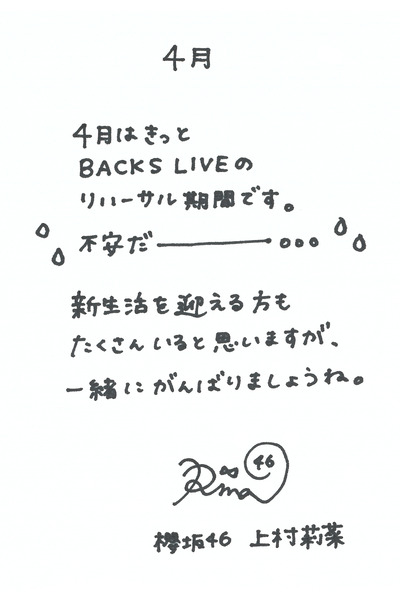 4月
4月はきっと
BACKS LIVEの
リハーサル期間です。
不安だ―――――。。。
新生活を迎える方も
たくさんいると思いますが、
一緒にがんばりましょうね。
Rina 46
櫻坂46 上村莉菜